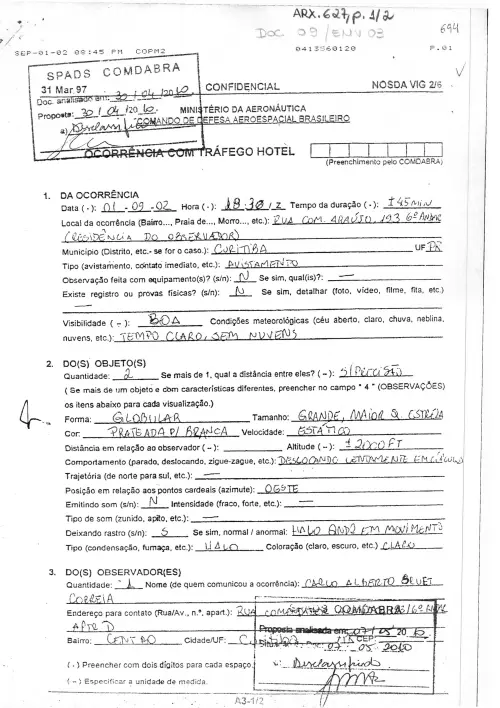 ARX.627, p. 1/2
DOC 09/ENV 03
694
SEP-01-02 09:45 PM COPM2 0413560120 P.01
SPADS COMDABRA
31 Mar 97 CONFIDENCIAL NOSDA VIG 2/6
Doc. analisado em: 30/04/2010
Proposta: 30/04/2010 MINISTÉRIO DA AERONÁUTICA
a) Desclassif COMANDO DE DEFESA AEROESPACIAL BRASILEIRO
OCORRÊNCIA COM TRÁFEGO HOTEL
(Preenchimento pelo COMDABRA)
1. DA OCORRÊNCIA
Data (·): 01-09-02 Hora (·): 18:30/Z Tempo da duração (·): ±45MIN
Local da ocorrência (Bairro..., Praia de..., Morro..., etc.): RUA COM. ARAÚJO, 193 6º ANDAR
(RESIDÊNCIA DO OBSERVADOR)
Município (Distrito, etc.- se for o caso.): CURITIBA UF PR
Tipo (avistamento, contato imediato, etc.): AVISTAMENTO
Observação feita com equipamento(s)? (s/n): N Se sim, qual(is)?: —
Existe registro ou provas físicas? (s/n): N Se sim, detalhar (foto, vídeo, filme, fita, etc.)
—
Visibilidade (~): BOA Condições meteorológicas (céu aberto, claro, chuva, neblina,
nuvens, etc.): TEMPO CLARO, SEM NUVENS
2. DO(S) OBJETO(S)
Quantidade: 2 Se mais de 1, qual a distância entre eles? (~): S/PRECISÃO
( Se mais de um objeto e com características diferentes, preencher no campo " 4 " (OBSERVAÇÕES)
os itens abaixo para cada visualização.)
Forma: GLOBULAR Tamanho: GRANDE, MAIOR Q. ESTRELA
Cor: PRATEADA P/ BRANCA Velocidade: ESTÁTICO
Distância em relação ao observador (~): Altitude (~): ±2000FT
Comportamento (parado, deslocando, zigue-zague, etc.): DESLOCANDO LENTAMENTE EM CÍRCULO
Trajetória (de norte para sul, etc.): —
Posição em relação aos pontos cardeais (azimute): OESTE
Emitindo som (s/n): N Intensidade (fraco, forte, etc.): —
Tipo de som (zunido, apito, etc.): —
Deixando rastro (s/n): S Se sim, normal / anormal: HALO EM MOVIMENTO
Tipo (condensação, fumaça, etc.): HALO Coloração (claro, escuro, etc.) CLARO
3. DO(S) OBSERVADOR(ES)
Quantidade: 1 Nome (de quem comunicou a ocorrência): CARLO ALBERTO
CORREIA
Endereço para contato (Rua/Av., n.º, apart.): RUA COMDABRA /6º ANDAR
APTO D Proposta analisada em: 07/05 20 10
Bairro: CENTRO Cidade/UF: C CEP:
07.05.2010
(·) Preencher com dois dígitos para cada espaço. Desclassificado
(~) Especificar a unidade de medida.
A3-1/2